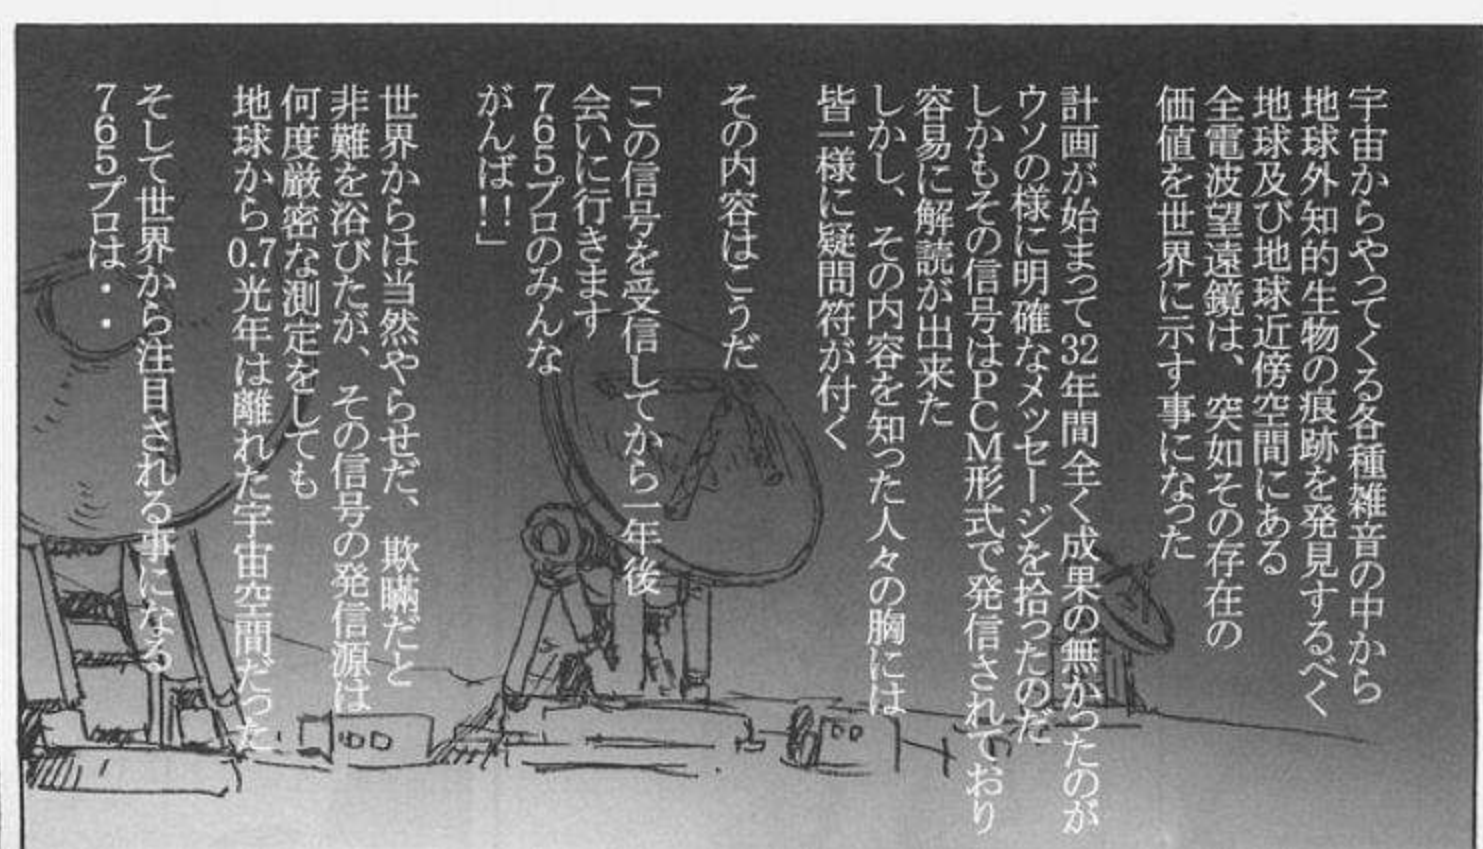 宇宙からやってくる各種雑音の中から
地球外知的生物の痕跡を発見するべく
地球及び地球近傍空間にある
全電波望遠鏡は、突如その存在の
価値を世界に示す事になった
計画が始まって32年間全く成果の無かったのが
ウソの様に明確なメッセージを拾ったのだ
しかもその信号はPCM形式で発信されており
容易に解読が出来た
しかし、その内容を知った人々の胸には
皆一様に疑問符が付く
その内容はこうだ
「この信号を受信してから一年後
会いに行きます
765プロのみんな
がんば!!」
世界からは当然やらせだ、欺瞞だと
非難を浴びたが、その信号の発信源は
何度厳密な測定をしても
地球から0.7光年は離れた宇宙空間だった
そして世界から注目される事になる
765プロは・・